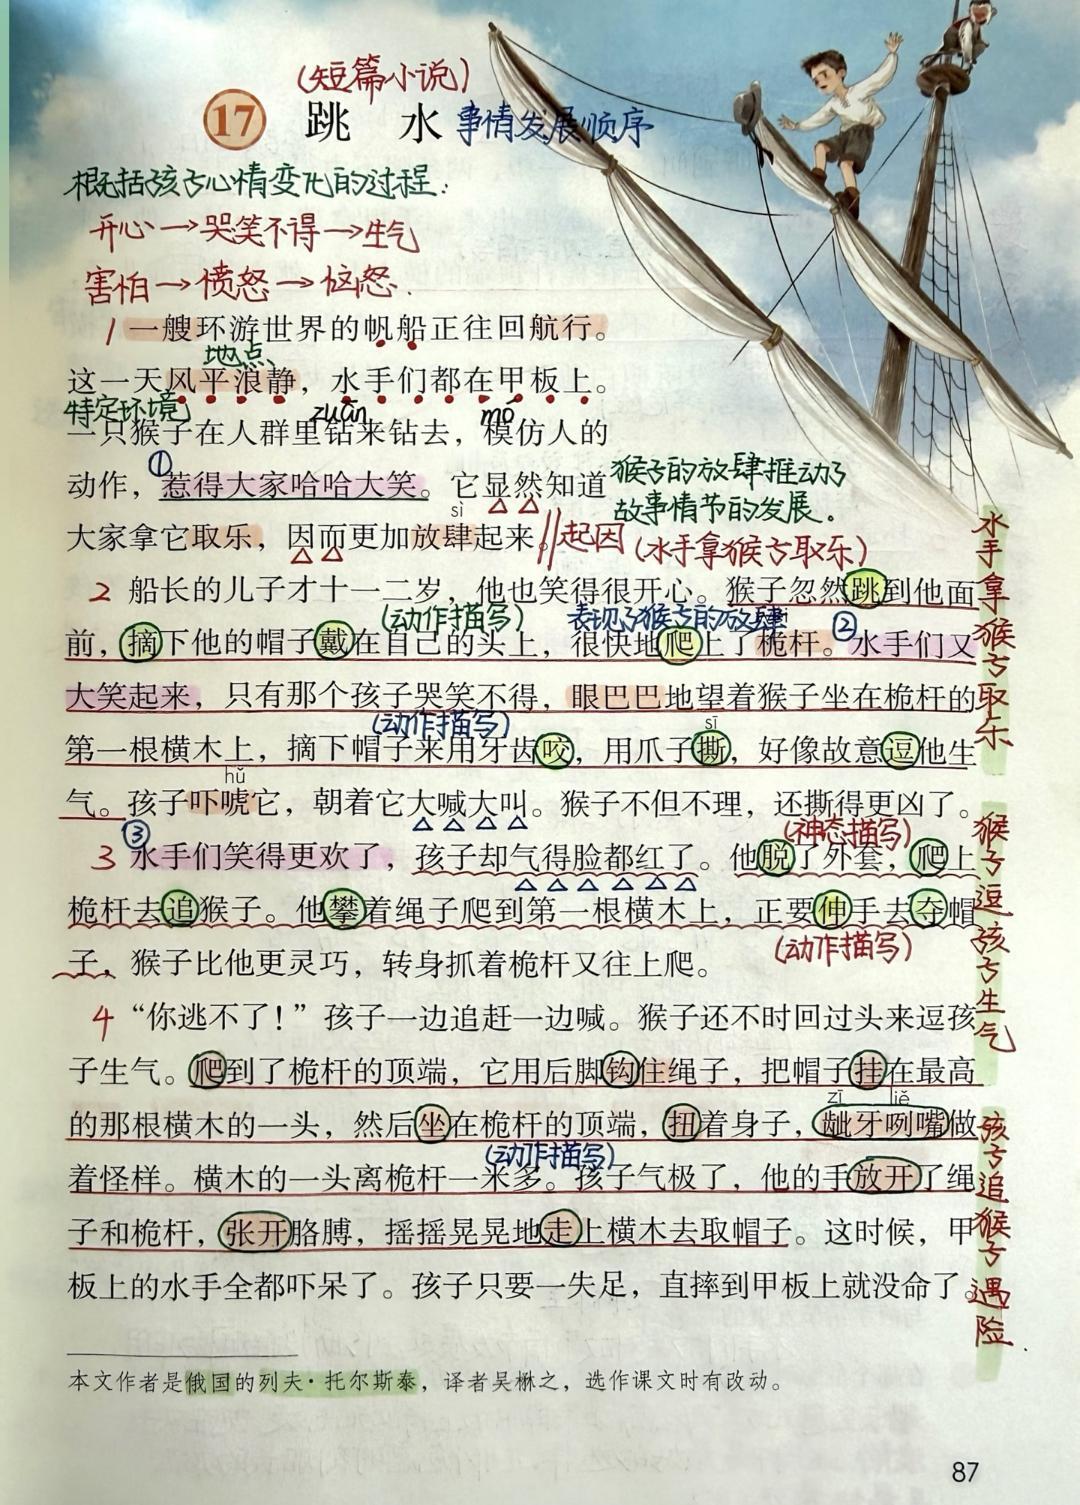 (短篇小说)
17 跳水 事情发展顺序
概括孩子心情变化的过程:
开心→哭笑不得→生气
害怕→愤怒→恼怒.
1 一艘环游世界的帆船正往回航行。
地点、
这一天风平浪静，水手们都在甲板上。
特定环境
zuān mó
一只猴子在人群里钻来钻去，模仿人的
①
动作，惹得大家哈哈大笑。它显然知道
猴子的放肆推动了
故事情节的发展。
sì
大家拿它取乐，因而更加放肆起来。
起因(水手拿猴子取乐)
2 船长的儿子才十一二岁，他也笑得很开心。猴子忽然跳到他面
(动作描写) 表现了猴子的放肆
前，摘下他的帽子戴在自己的头上，很快地爬上了桅杆。②水手们又
大笑起来，只有那个孩子哭笑不得，眼巴巴地望着猴子坐在桅杆的
(动作描写)
sī
第一根横木上，摘下帽子来用牙齿咬，用爪子撕，好像故意逗他生
hǔ
气。孩子吓唬它，朝着它大喊大叫。猴子不但不理，还撕得更凶了。
③ (神态描写)
3 水手们笑得更欢了，孩子却气得脸都红了。他脱了外套，爬上
桅杆去追猴子。他攀着绳子爬到第一根横木上，正要伸手去夺帽
(动作描写)
子，猴子比他更灵巧，转身抓着桅杆又往上爬。
4 “你逃不了！”孩子一边追赶一边喊。猴子还不时回过头来逗孩
子生气。爬到了桅杆的顶端，它用后脚钩住绳子，把帽子挂在最高
zī liě
的那根横木的一头，然后坐在桅杆的顶端，扭着身子，龇牙咧嘴做
(动作描写)
着怪样。横木的一头离桅杆一米多。孩子气极了，他的手放开了绳
子和桅杆，张开胳膊，摇摇晃晃地走上横木去取帽子。这时候，甲
板上的水手全都吓呆了。孩子只要一失足，直摔到甲板上就没命了。
水手拿猴子取乐
猴子逗孩子生气
孩子追猴子遇险
本文作者是俄国的列夫·托尔斯泰，译者吴楙之，选作课文时有改动。
87